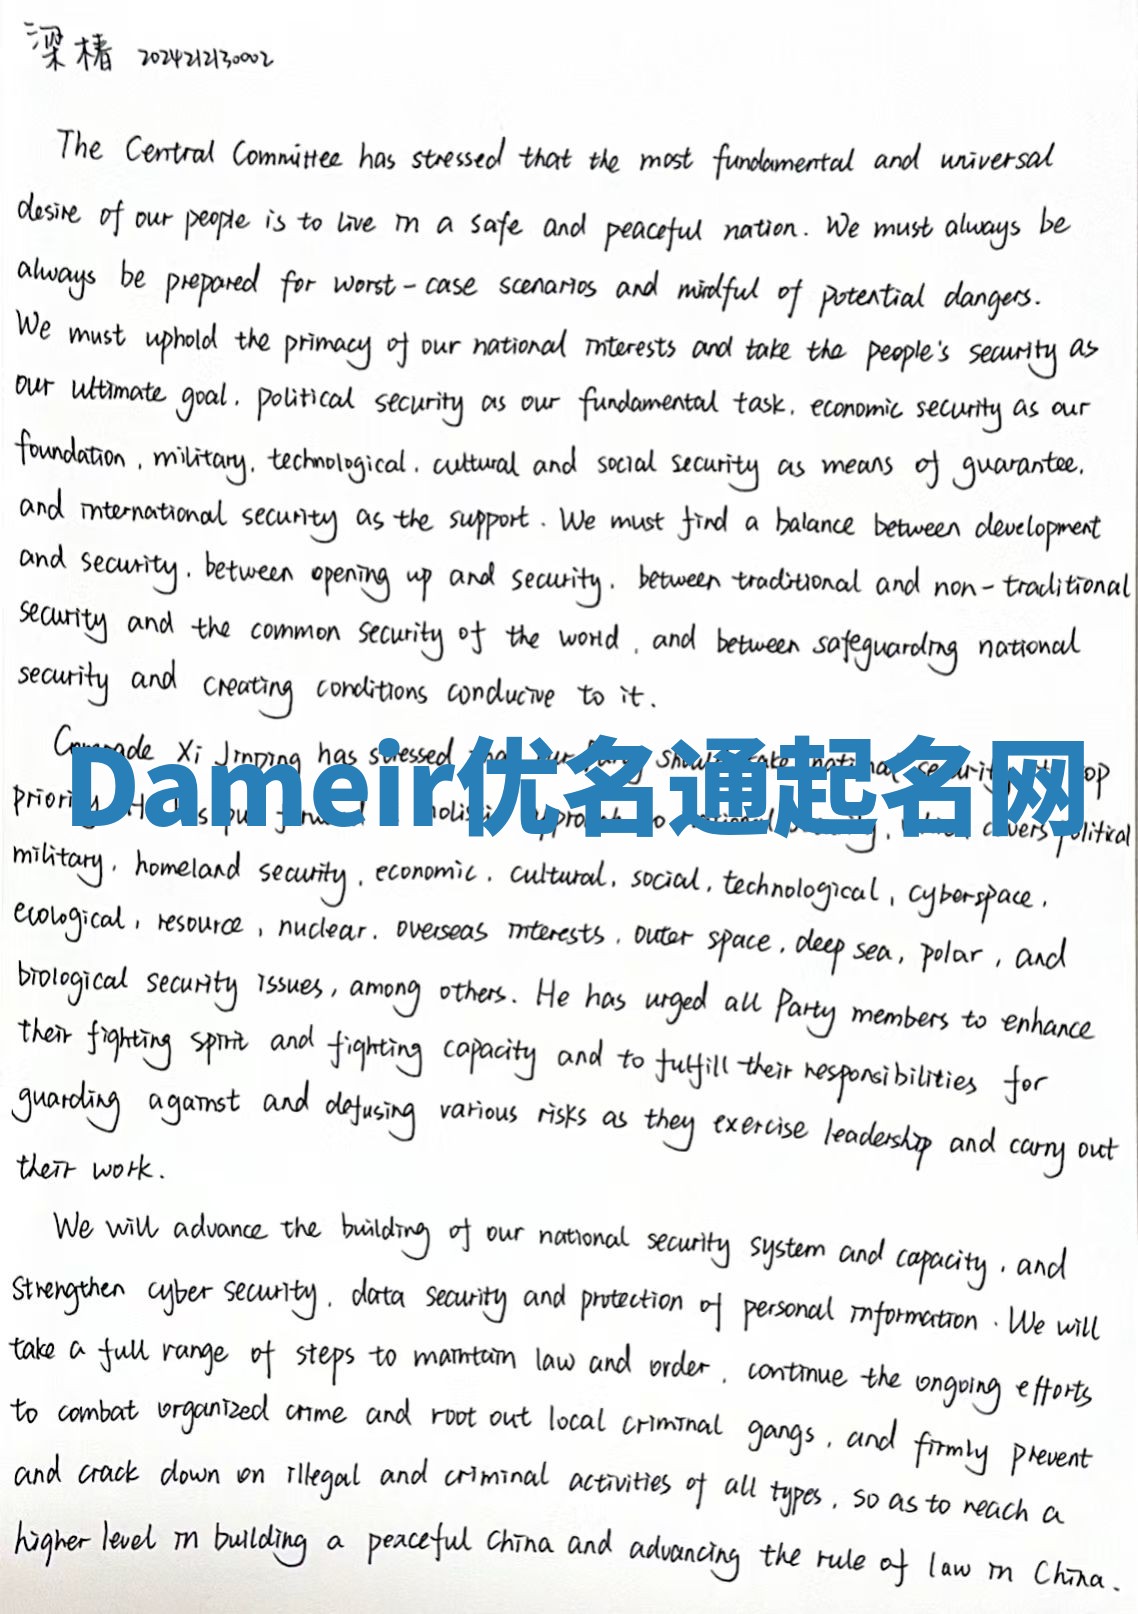 梁椿 2024212130002
The Central Committee has stressed that the most fundamental and universal
desire of our people is to live in a safe and peaceful nation. We must always be
always be prepared for worst-case scenarios and mindful of potential dangers.
We must uphold the primacy of our national interests and take the people's security as
our ultimate goal, political security as our fundamental task, economic security as our
foundation, military, technological, cultural and social security as means of guarantee,
and international security as the support. We must find a balance between development
and security, between opening up and security, between traditional and non-traditional
security and the common security of the world, and between safeguarding national
security and creating conditions conducive to it.
Xi Jinping has stressed
Dameir优名通起名网
political
military, homeland security, economic, cultural, social, technological, cyberspace,
ecological, resource, nuclear, overseas interests, outer space, deep sea, polar, and
biological security issues, among others. He has urged all Party members to enhance
their fighting spirit and fighting capacity and to fulfill their responsibilities for
guarding against and defusing various risks as they exercise leadership and carry out
their work.
We will advance the building of our national security system and capacity, and
strengthen cyber security, data security and protection of personal information. We will
take a full range of steps to maintain law and order, continue the ongoing efforts
to combat organized crime and root out local criminal gangs, and firmly prevent
and crack down on illegal and criminal activities of all types, so as to reach a
higher level in building a peaceful China and advancing the rule of law in China.